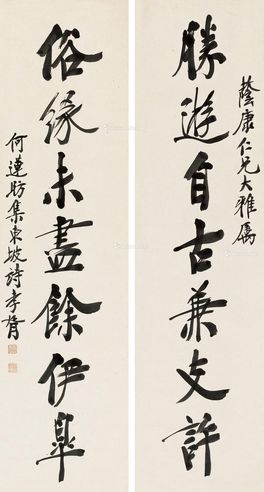 蔭康仁兄大雅屬
勝遊自古兼支許
俗緣未盡餘伊皐
何連舫集東坡詩 孝胥